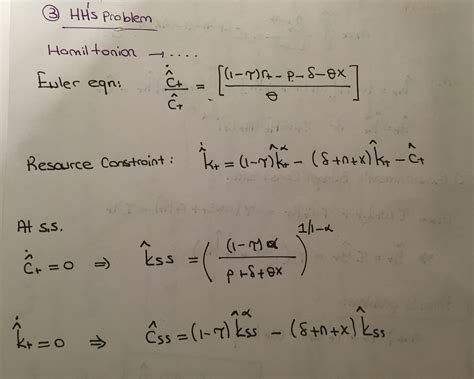 ③ HH's Problem
Hamiltonian → ....
Euler eqn: ĉ̇ₜ/ĉₜ = [((1-τ)rₜ - ρ - δ - θx)/θ]
Resource Constraint: k̂̇ₜ = (1-τ)k̂ₜ^α - (δ+n+x)k̂ₜ - ĉₜ
At s.s.
ĉ̇ₜ = 0 ⇒ k̂ss = ((1-τ)α/(ρ+δ+θx))^(1/1-α)
k̂̇ₜ = 0 ⇒ ĉss = (1-τ)k̂ss^α - (δ+n+x)k̂ss